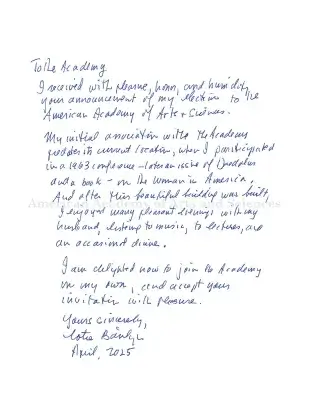 To the Academy
I received with pleasure, honor, and humility,
your announcement of my election to the
American Academy of Arts + Sciences.
My initial association with the Academy
predates its current location, when I participated
in a 1963 conference – later an issue of Daedalus
and a book – on the Woman in America.
And after this beautiful building was built,
I enjoyed many pleasant evenings with my
husband, listening to music, to lectures, and
an occasional dinner.
I am delighted now to join the Academy
on my own, and accept your
invitation with pleasure.
Yours sincerely,
Lotte Bailyn
April, 2025